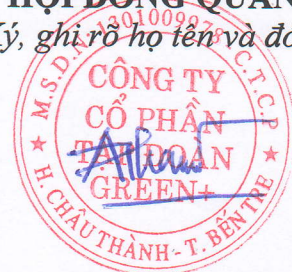 HỘI ĐỒNG QUẢN
Ký, ghi rõ họ tên và đó
M.S.D.N: 1301009978 - C.T.C.P
CÔNG TY
CỔ PHẦN
TẬP ĐOÀN
GREEN+
H. CHÂU THÀNH - T. BẾN TRE